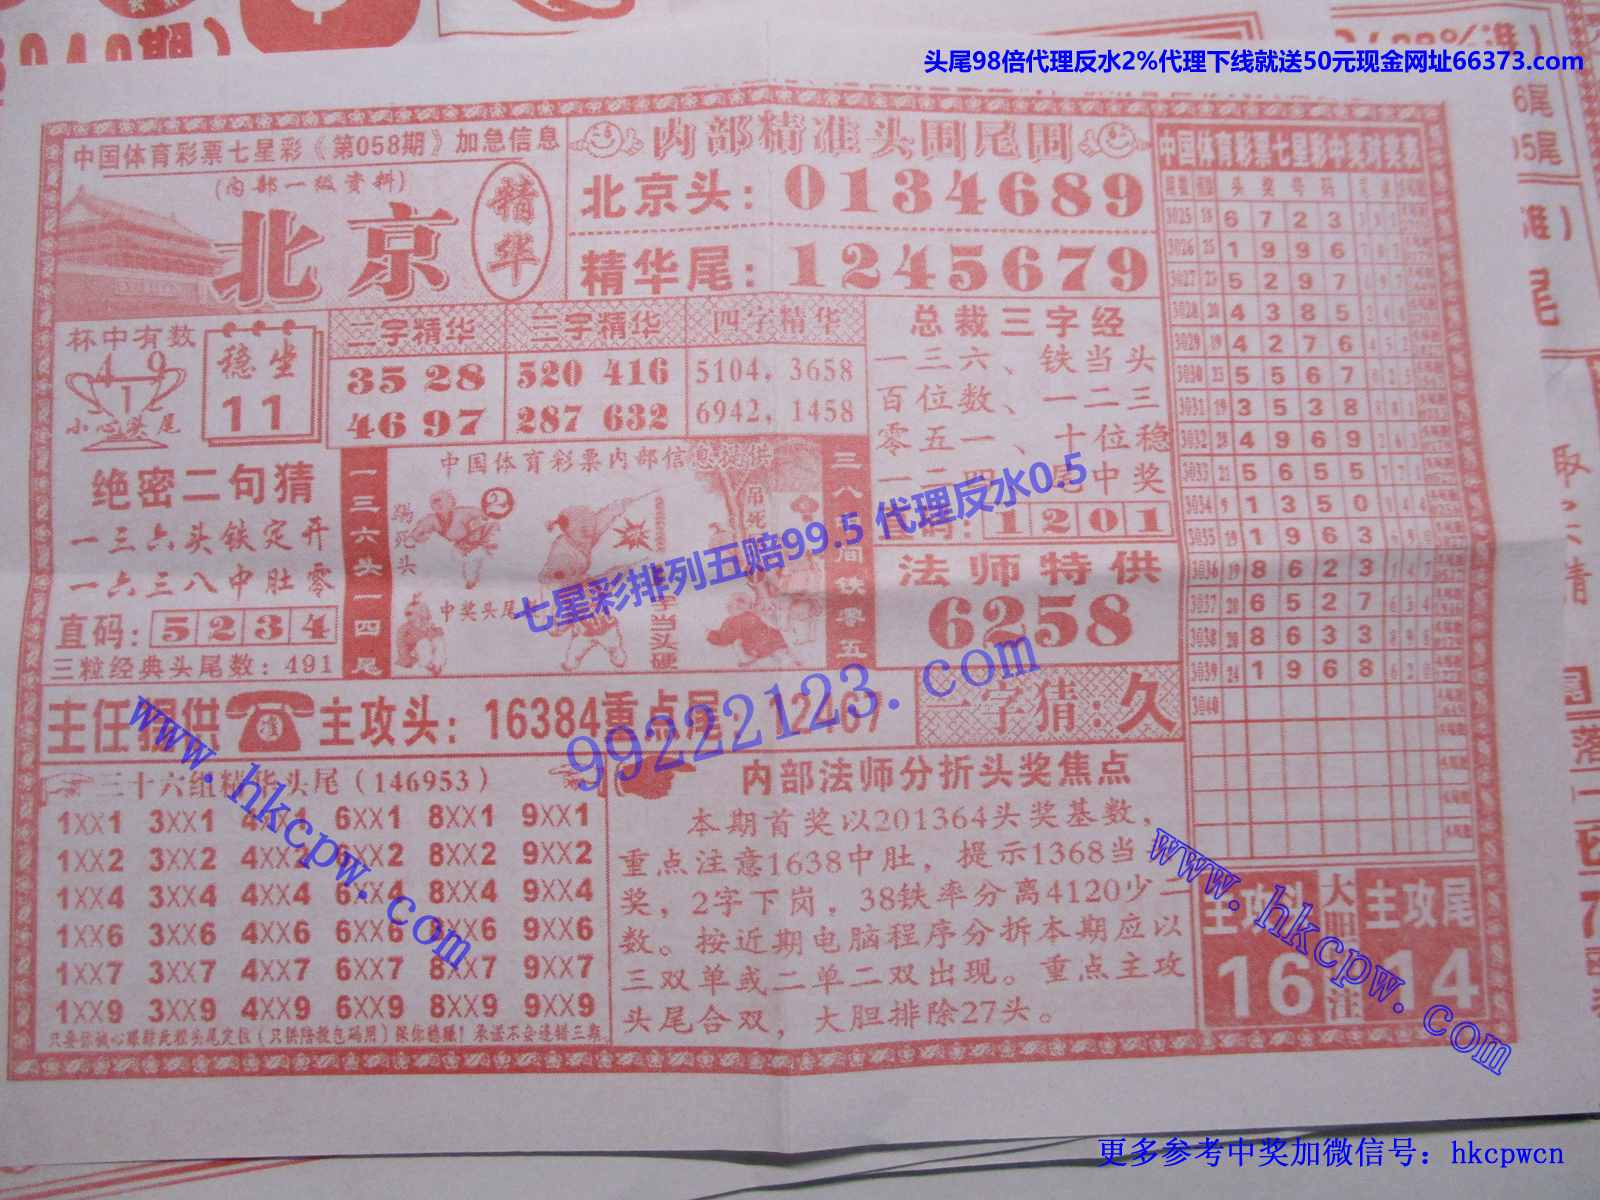 头尾98倍代理反水2%代理下线就送50元现金网址66373.com
中国体育彩票七星彩《第058期》加急信息
(内部一级资料)
北京
精华
内部精准头围尾围
北京头：0134689
精华尾：1245679
杯中有数
4 9
1
小心头尾
稳坐
11
二字精华
35 28
46 97
三字精华
520 416
287 632
四字精华
5104, 3658
6942, 1458
总裁三字经
一三六、铁当头
百位数、一二三
零五一、十位稳
尾中奖
1201
绝密二句猜
一三六头铁定开
一六三八中肚零
直码：5234
三粒经典头尾数：491
一三六头一四尾
中国体育彩票内部信息提供
踢死头
2
中奖头尾
当头硬
吊死
法师特供
6258
主任提供
主攻头：16384重点尾：12467
一字猜：久
三十六组精华头尾（146953）
1XX1 3XX1 4XX1 6XX1 8XX1 9XX1
1XX2 3XX2 4XX2 6XX2 8XX2 9XX2
1XX4 3XX4 4XX4 6XX4 8XX4 9XX4
1XX6 3XX6 4XX6 6XX6 8XX6 9XX6
1XX7 3XX7 4XX7 6XX7 8XX7 9XX7
1XX9 3XX9 4XX9 6XX9 8XX9 9XX9
内部法师分折头奖焦点
本期首奖以201364头奖基数，
重点注意1638中肚，提示1368当
奖，2字下岗，38铁率分离4120少二
数。按近期电脑程序分拆本期应以
三双单或二单二双出现。重点主攻
头尾合双，大胆排除27头。
中国体育彩票七星彩中奖对奖表
头奖号码
3025 18 6 7 2 3
3026 25 1 9 9 6
3027 5 2 9 7
3028 20 4 3 8 5
3029 19 4 2 7 6
3030 23 5 5 6 7
3031 19 3 5 3 8
3032 28 4 9 6 9
3033 21 5 6 5 5
3034 9 1 3 5 0
3035 19 1 9 6 3
3036 19 8 6 2 3
3037 20 6 5 2 7
3038 20 8 6 3 3
3039 24 1 9 6 8
3040
主攻头
16
大胆
注
主攻尾
14
七星彩排列五赔99.5 代理反水0.5
99222123.com
www.hkcpw.com
www.hkcpw.com
更多参考中奖加微信号：hkcpwcn